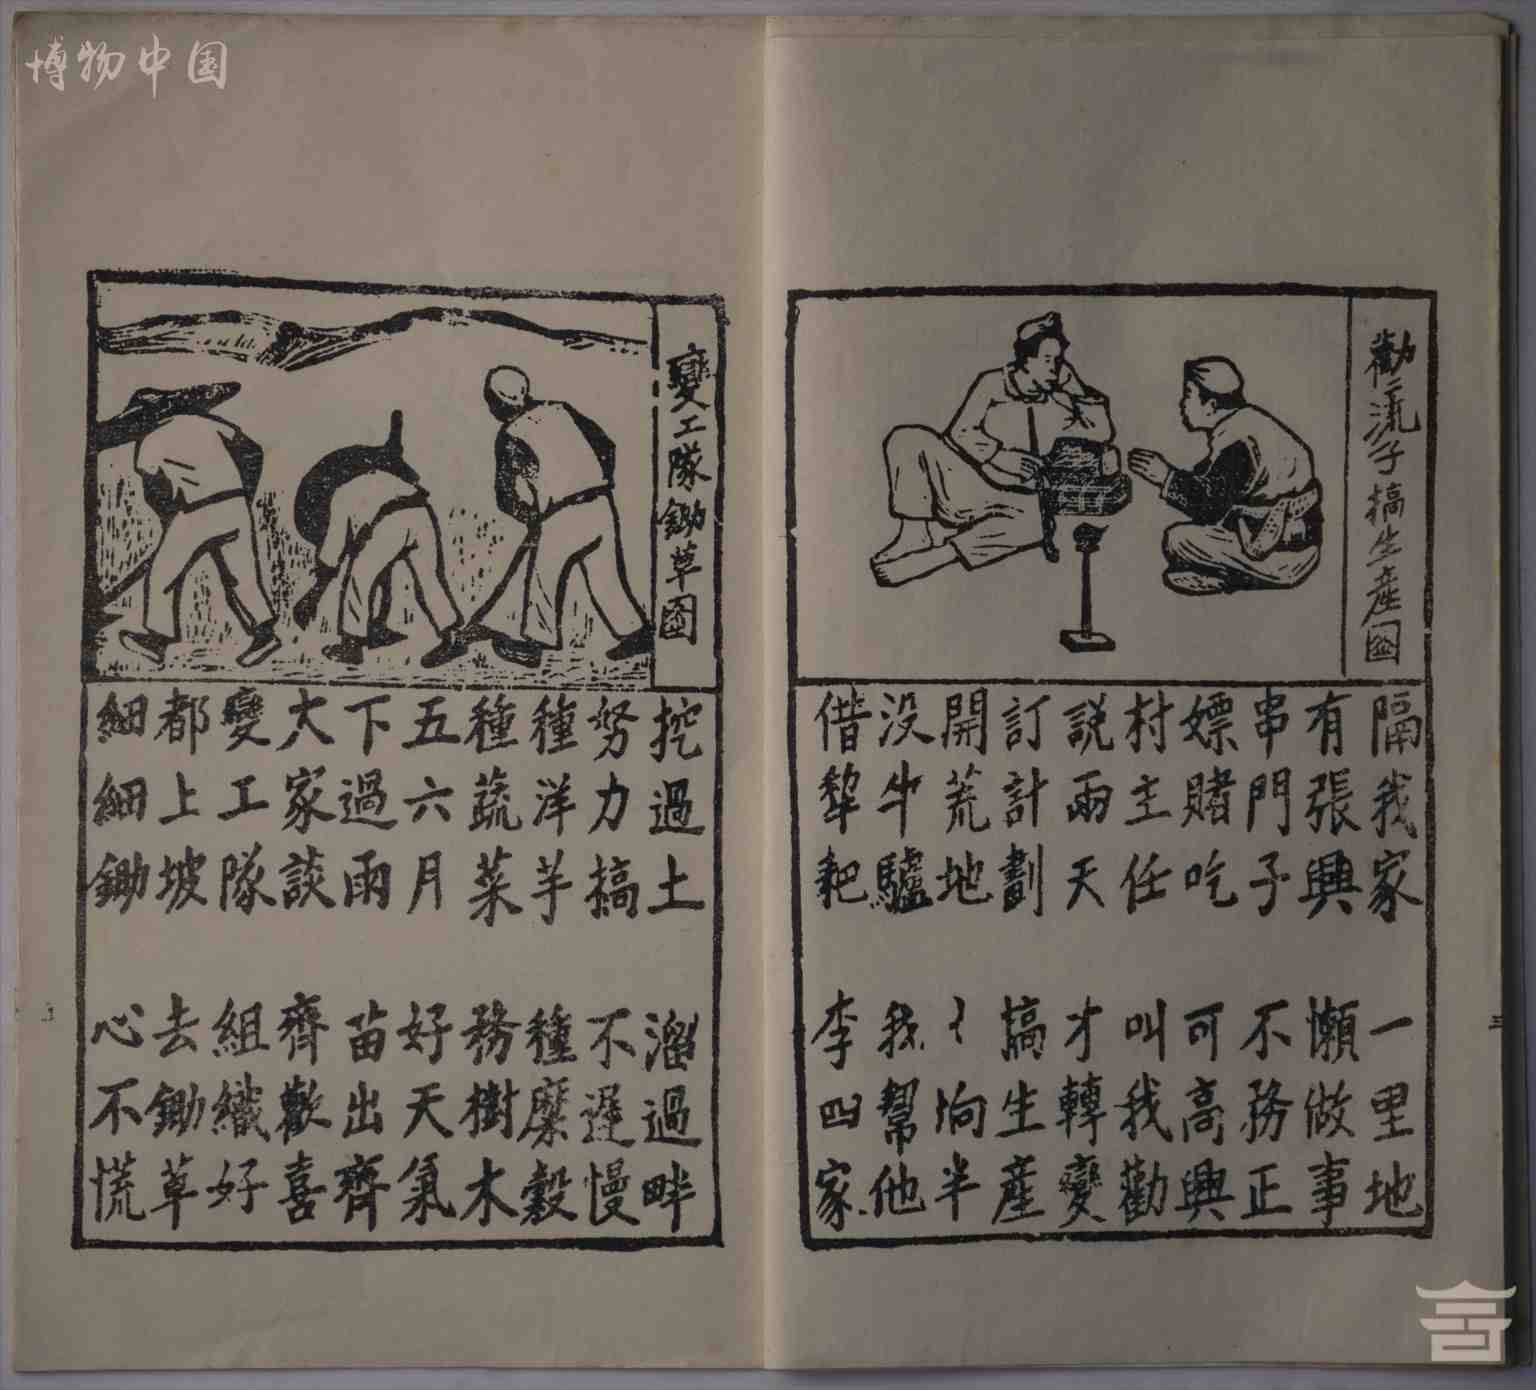 博物中国
勸二流子搞生產圖
隔我家 一里地
有張興 懶做事
串門子 不務正
嫖賭吃 可高興
村主任 叫我勸
説兩天 才轉變
訂計劃 搞生產
開荒地 〻垧半
没牛驢 我幫他
借犂耙 李四家
三
變工隊鋤草圖
挖過土 溜過畔
努力搞 不遲慢
種洋芋 種糜穀
種蔬菜 務樹木
五六月 好天氣
下過雨 苗出齊
大家談 齊歡喜
變工隊 組織好
都上坡 去鋤草
細細鋤 心不慌